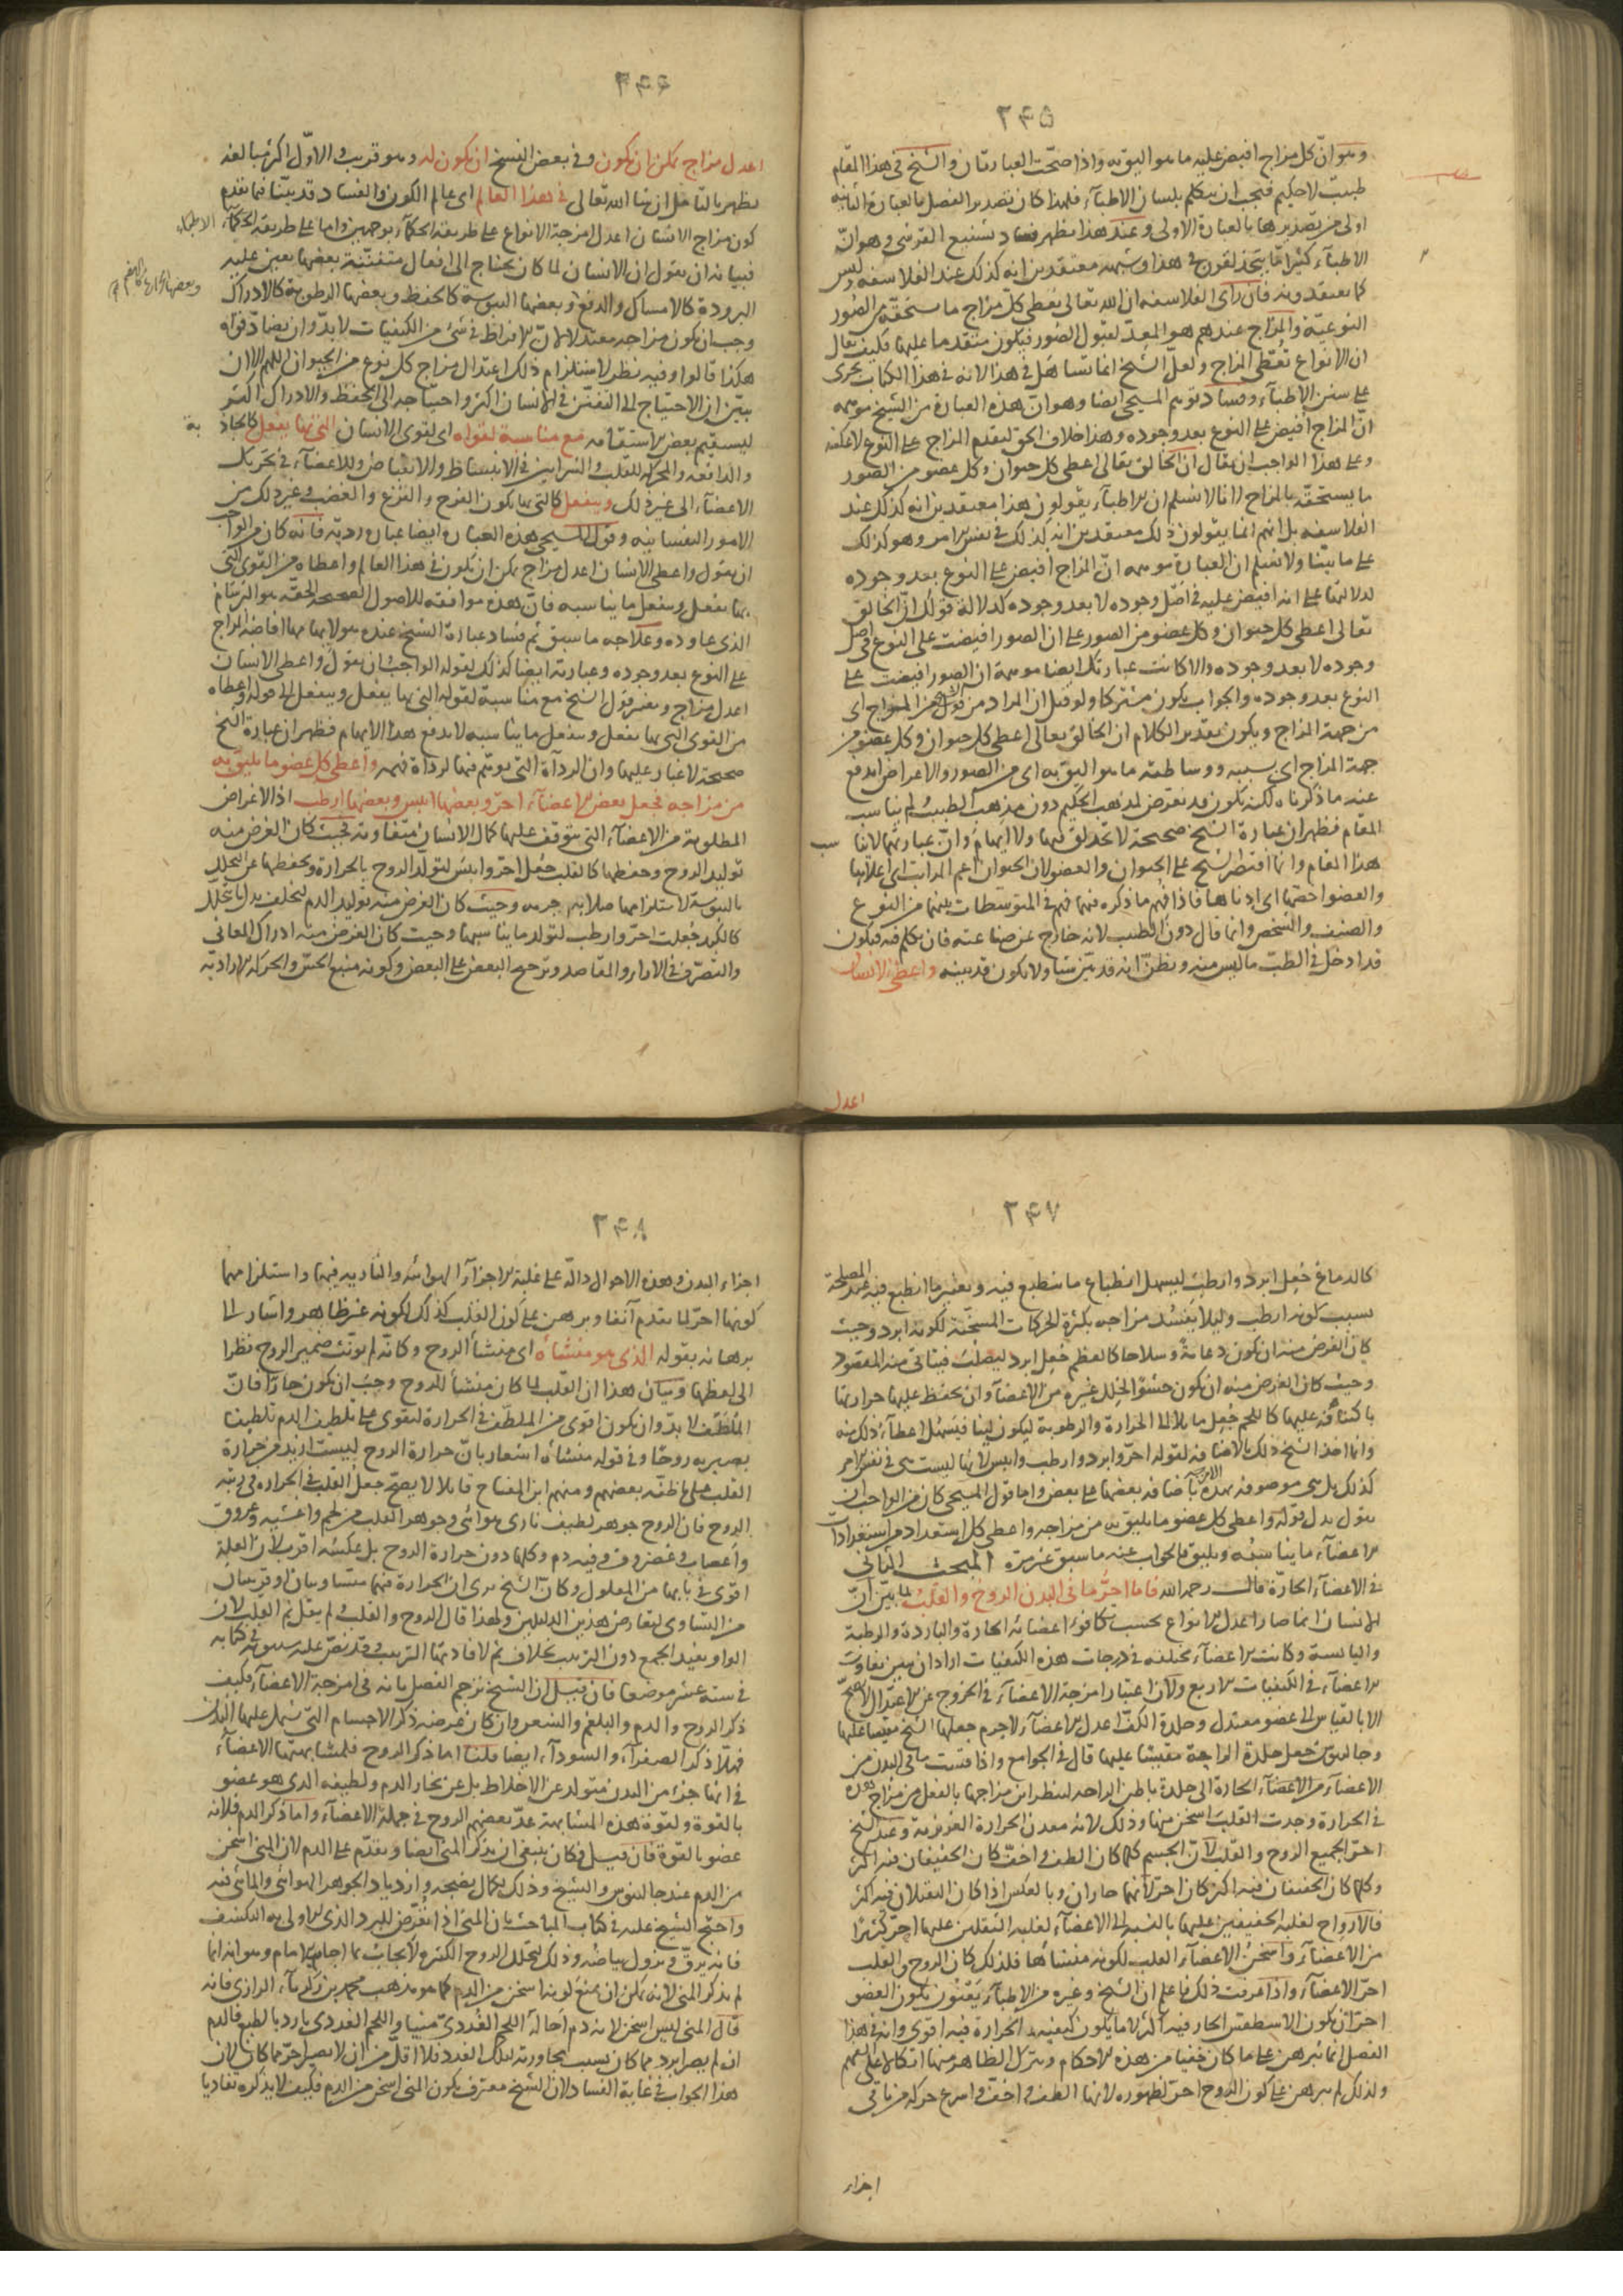 ٢٤٥
وهو ان كل مزاج افيض عليه ما هو اليق به واذا صحّت العبارتان والشيخ في هذا المقام
طبيب لا حكيم فيجب ان يتكلم بلسان الاطباء فلهذا كان تصدير الفصل بالعبارة الثانية
اولى من تصديرها بالعبارة الاولى وعند هذا يظهر فساد تشنيع القرشى وهو انّ
الاطباء كثيرا ما يتخذلقون في هذا وشبهه معتقدين انه كذلك عند الفلاسفة وليس
كما يعتقدونه فان رأى الفلاسفة ان الله تعالى يعطى كلّ مزاج ما يستحقّه من الصور
النوعيّة والمزاج عندهم هو المعدّ لقبول الصور فيكون متقدما عليها فكيف يقال
ان الانواع تُعْطى المزاج ولعلّ الشيخ انما تساهل في هذا لانه في هذا الكتاب يجرى
على سنن الاطباء وفساد توهم المسيحى ايضا وهو انّ هذه العبارة من الشيخ موهمة
انّ المزاج افيض على النوع بعد وجوده وهذا خلاف الحق لتقدم المزاج على النوع لا عكسه
وعلى هذا الواجب ان يقال ان الخالق تعالى اعطى كل حيوان وكل عضو من الصور
ما يستحقّه بالمزاج لانا لا نسلم ان الاطباء يقولون هذا معتقدين انه كذلك عند
الفلاسفة بل انهم انما يقولون ذلك معتقدين انه كذلك في نفس الامر وهو كذلك
على ما بيّنا ولا نسلم ان العبارة موهمة انّ المزاج افيض على النوع بعد وجوده
لدلالتها على انه افيض عليه في اصل وجوده لا بعد وجوده كدلالة قولك انّ الخالق
تعالى اعطى كل حيوان وكل عضو من الصور على ان الصور افيضت على النوع في اصل
وجوده لا بعد وجوده والا كانت عبارتك ايضا موهمة ان الصور افيضت على
النوع بعد وجوده والجواب يكون مشتركا ولو قيل ان المراد من قوله من المزاج اى
من جهة المزاج ويكون تقدير الكلام ان الخالق تعالى اعطى كل حيوان وكل عضو من
جهة المزاج اى بسببه ووساطته ما هو اليق به اى من الصور والاعراض اندفع
عنه ما ذكرناه لكنه يكون قد تعرّض لمذهب الحكيم دون مذهب الطبيب ولم يناسب
المقام فظهر ان عبارة الشيخ صحيحة لا تخذلق فيها ولا ايهام وانّ عبارتهما لا تناسب
هذا المقام وانما اقتصر الشيخ على الحيوان والعضو لان الحيوان اعم المراتب اى اعلاها
والعضو اخصّها اى ادناها فاذا فهم ما ذكره فيهما فهم في المتوسطات بينهما من النوع
والصنف والشخص وانما قال دون الطب لانه خارج عن صناعته فان تكلم فيه فيكون
قد ادخل في الطبّ ما ليس منه ويظنّ انه قد بيّن شيئا ولا يكون قد بيّنه واعطى الانسان
اعدل
٢٤٦
اعدل مزاج يمكن ان يكون وفي بعض النسخ ان يكون له وهو قريب والاوّل اكثر مبالغة
يظهر بالتأمل ان شاء الله تعالى في هذا العالم اى عالم الكون والفساد قد بيّنا فيما تقدم
كون مزاج الانسان اعدل امزجة الانواع على طريقة الحكماء بوجهين واما على طريقة الحكماء الاطباء
فبيانه ان يقول ان الانسان لما كان يحتاج الى افعال متفنّنة بعضها يعين عليه
البرودة كالامساك والدفع وبعضها اليبوسة كالحفظ وبعضها الرطوبة كالادراك
وبعضها الحرارة كالهضم
وجب ان يكون مزاجه معتدلا لانّ الافراط في شى من الكيفيات لا بدّ وان يضادّ قواه
هكذا قالوا وفيه نظر لاستلزام ذلك اعتدال مزاج كل نوع من الحيوان اللهم الا ان
يبيّن ان الاحتياج الى التفنّن في الانسان اكثر واحتياجه الى الحفظ والادراك اكثر
ليستقيم بعض الاستقامة مع مناسبة لقواه اى لقوى الانسان التى بها يفعل كالجاذبة
والدافعة والمحركة للقلب والشرايين في الانبساط والانقباض وللاعضاء في تحريك
الاعضاء الى غير ذلك وينفعل كالتى بها يكون الفرح والفزع والغضب وغير ذلك من
الامور النفسانية وقول المسيحى هذه العبارة ايضا عبارة رديّة فانه كان من الواجب
ان يقول واعطى الانسان اعدل مزاج يمكن ان يكون في هذا العالم واعطاه من القوى التى
بها يفعل وينفعل ما يناسبه فانّ هذه موافقة للاصول الصحيحة الحقّة هو الرّسام
الذى عاوده وعلاجه ما سبق ثم فساد عبارة الشيخ عنده هو لايهامها افاضة المزاج
على النوع بعد وجوده وعبارته ايضا كذلك لقوله الواجب ان يقول واعطى الانسان
اعدل مزاج وتغيير قول الشيخ مع مناسبة لقواه التى بها يفعل وينفعل الى قوله واعطاه
من القوى التى بها يفعل وينفعل ما يناسبه لا يدفع هذا الايهام فظهر ان عبارة الشيخ
صحيحة لا غبار عليها وان الرداءة التى توهّم فيها لرداءة فهمه واعطى كل عضو ما يليق به
من مزاجه فجعل بعض الاعضاء احرّ وبعضها ايبس وبعضها ارطب اذ الاغراض
المطلوبة من الاعضاء التى يتوقف عليها كمال الانسان متفاوتة فحيث كان الغرض منه
توليد الروح وحفظها كالقلب جُعل احرّ وايبس لتولّد الروح بالحرارة وتحفظها عن التحلل
باليبوسة لاستلزامها صلابة جرمه وحيث كان الغرض منه توليد الدم لتخلف بدل ما يتحلل
كالكبد جُعلت احرّ وارطب لتولد ما يناسبها وحيث كان الغرض منه ادراك المعانى
والتصرّف في الاراء والمقاصد وترجيح البعض على البعض وكونه منبع الحسّ والحركة الارادية
٢٤٧
كالدماغ جُعل ابرد وارطب ليسهل انطباع ما ينطبع فيه وتغيّر ما انطبع فيه عند المصلحة
بسبب كونه ارطب ولئلا يفسد مزاجه بكثرة الحركات المسخّنة لكونه ابرد وحيث
كان الغرض منه ان يكون دعامةً وسلاحا كالعظم جُعل ابرد ليصلب فيتأتّى منه المقصود
وحيث كان الغرض منه ان يكون حشوًا لخلل غيره من الاعضاء وان يحفظ عليها حرارتها
باكتنافه عليها كاللحم جُعل مايلا الى الحرارة والرطوبة ليكون ليّنا فيسهل اعطاء ذلك منه
وانما اخذ الشيخ ذلك بالاضافة لقوله احرّ وابرد وارطب وايبس لانها ليست هى في نفس الامر
كذلك بل هى موصوفة بهذه باضافة بعضها على بعض واما قول المسيحى كان من الواجب ان
يقول بدل قوله واعطى كل عضو ما يليق به من مزاجه واعطى كل استعداد من استعدادات
الاعضاء ما يناسبه ويليق فالجواب عنه ما سبق غير مرة المبحث الثانى
في الاعضاء الحارّة قال رحمه الله فاما احرّ ما في البدن الروح والقلب لما بيّن انّ
الانسان انما صار اعدل الانواع بحسب تكافؤ اعضائه الحارة والباردة والرطبة
واليابسة وكانت الاعضاء مختلفة في درجات هذه الكيفيات اراد ان يبيّن تفاوت
الاعضاء في الكيفيات الاربع ولان اعتبار امزجة الاعضاء في الخروج عن الاعتدال لا يصحّ
الا بالقياس الى عضو معتدل وجلدة الكف اعدل الاعضاء لا جرم جعلها الشيخ مقيسا عليها
وجالينوس جعل جلدة الراحة مقيسًا عليها قال في الجوامع واذا قست ما في البدن من
الاعضاء من الاعضاء الحارة الى جلدة باطن الراحة لتنظر اين مزاجها بالفعل من مزاج هذه
في الحرارة وجدت القلب اسخن منها وذلك لانه معدن الحرارة الغريزية وعند الشيخ
احرّ الجميع الروح والقلب لانّ الجسم كلما كان الطف واخفّ كان الخفيفان فيه اكثر
وكلما كان الخفيفان فيه اكثر كان احرّ لانهما حاران وبالعكس اذا كان الثقيلان فيه اكثر
فالارواح لغلبة الخفيفين عليها بالنسبة الى الاعضاء لغلبة الثقيلين عليها احرّ كثيرًا
من الاعضاء واسخن الاعضاء القلب لكونه منشأها فلذلك كان الروح والقلب
احرّ الاعضاء واذا عرفت ذلك فاعلم ان الشيخ وغيره من الاطباء يَعْنُون بكون العضو
احرّ ان يكون الاسطقس الحار فيه اكثر لا ما يكون كيفية الحرارة فيه اقوى وانه في هذا
الفصل انما يبرهن على ما كان خفيا من هذه الاحكام ويترك الظاهر منها اتكالا على الفهم
ولذلك لم يبرهن على كون الروح احرّ لظهوره لانها الطف واخفّ واسرع حركة من باقى
اجزاء
٢٤٨
اجزاء البدن وهذه الاحوال دالّة على غلبة الاجزاء الهوائية والنارية فيها واستلزامها
كونها احرّ لما تقدم آنفا وبرهن على كون القلب كذلك لكونه غير ظاهر واشار الى
برهانه بقوله الذى هو منشأه اى منشأ الروح وكانه لم يؤنّث ضمير الروح نظرا
الى لفظها وبيان هذا ان القلب لما كان منشأ للروح وجب ان يكون حارّا فانّ
الملطّف لا بدّ وان يكون اقوى من الملطَّف في الحرارة لتقوى على تلطيف الدم تلطيفا
يصير به روحًا وفي قوله منشأه اشعار بانّ حرارة الروح ليست ازيد من حرارة
القلب على ما ظنّه بعضهم ومنهم ابن المفتاح قائلا لا يصحّ جعلُ القلب في الحرارة في رتبة
الروح فان الروح جوهر لطيف نارى هوائى وجوهر القلب من لحم واغشية وعروق
واعصاب وغضروف وفيه دم وكلها دون حرارة الروح بل عكسُه اقرب لان العلة
اقوى في بابها من المعلول وكان الشيخ يرى ان الحرارة فيهما متساويتان او قريبتان
من التساوى لتعارض هذين الدليلين ولهذا قال الروح والقلب ولم يقل ثم القلب لان
الواو يفيد الجمع دون الترتيب بخلاف ثم لافادتها الترتيب وقد نصّ عليه سيبويه في كتابه
في ستة عشر موضعا فان قيل ان الشيخ ترجم الفصل بانه في امزجة الاعضاء فكيف
ذكر الروح والدم والبلغم والشعر وان كان غرضه ذكر الاجسام التى يشتمل عليها البدن
فهلّا ذكر الصفراء والسوداء ايضا قلنا اما ذكر الروح فلمشابهتها الاعضاء
في انها جزء من البدن متولد عن الاخلاط بل عن بخار الدم ولطيفه الذى هو عضو
بالقوة ولقوة هذه المشابهة عدّ بعضهم الروح في جملة الاعضاء واما ذكر الدم فلانه
عضو بالقوة فان قيل فكان ينبغى ان يذكر المنى ايضا ويقدّم على الدم لان المنى اسخن
من الدم عند جالينوس والشيخ وذلك لكمال نضجه وازدياد الجوهر الهوائى والمائى فيه
واحتج الشيخ عليه في كتاب المباحث بان المنى اذا تُعرّض للبرد الذى الاولى به التكثيف
فانه يرقّ ويزول بياضه وذلك لتحلل الروح الكثيرة لا يجاب بما اجاب الامام وهو انه انما
لم يذكر المنى لانه يمكن ان يمنع كونه اسخن من الدم كما هو مذهب محمد بن زكرياء الرازى فانه
قال المنى ليس اسخن لانه دم احاله اللحم الغُددىّ منيا واللحم الغددى بارد بالطبع فالدم
ان لم يصر ابرد مما كان بسبب مجاورته لتلك الغدد فلا اقلّ من ان لا يصير احرّ مما كان لان
هذا الجواب في غاية الفساد لان الشيخ معترف بكون المنى اسخن من الدم فكيف لا يذكره تفاديا